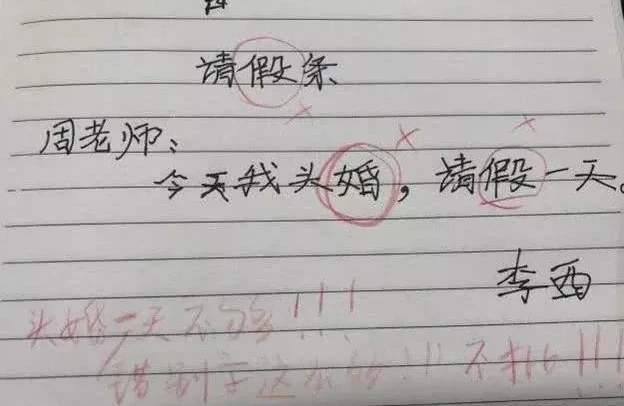 请假条
周老师：
今天我头婚，请假一天。
李西
头婚一天不够！！！
错别字这么多！！！不批！！！